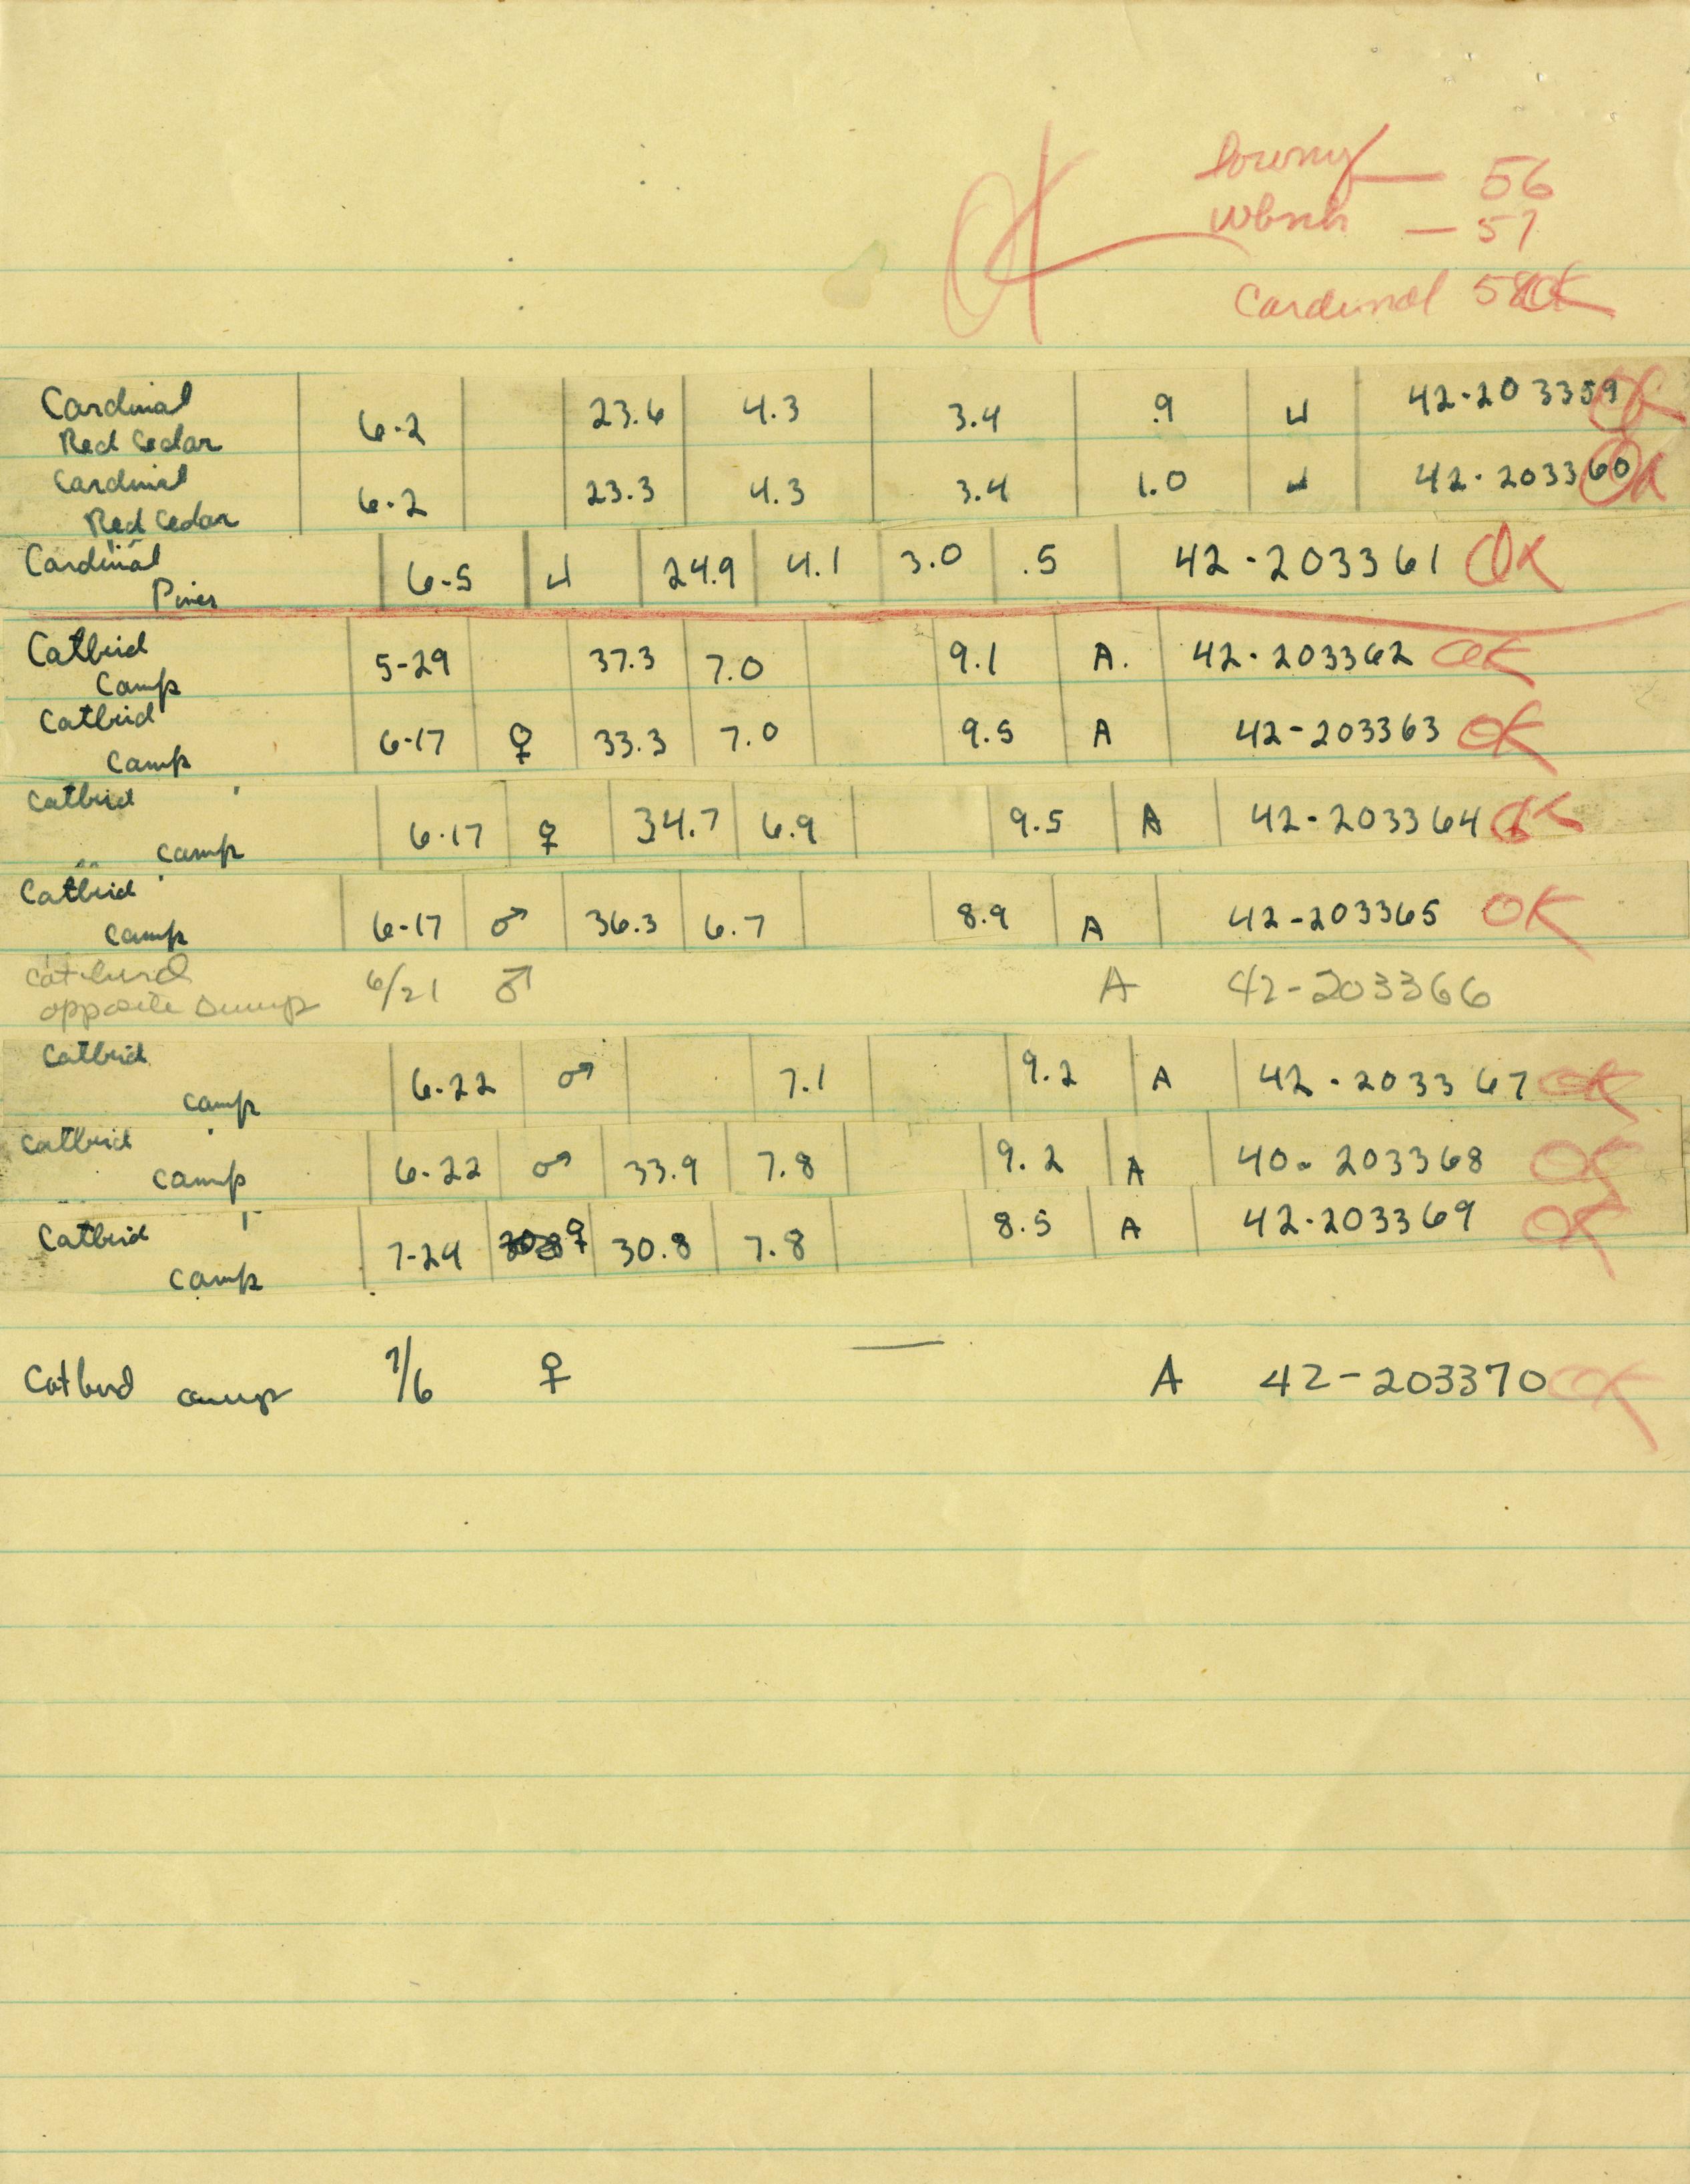 Downy — 56
OK Wbnh — 57
Cardinal 58 OK
Cardinal 6-2 23.6 4.3 3.4 .9 4 42-203359 OK
Red Cedar
Cardinal 6-2 23.3 4.3 3.4 1.0 4 42-203360 OK
Red Cedar
Cardinal 6-5 4 24.9 4.1 3.0 .5 42-203361 OK
Pines
Catbird 5-29 37.3 7.0 9.1 A. 42-203362 OK
Camp
Catbird 6-17 ♀ 33.3 7.0 9.5 A 42-203363 OK
Camp
Catbird 6-17 ♀ 34.7 6.9 9.5 A 42-203364 OK
camp
Catbird 6-17 ♂ 36.3 6.7 8.9 A 42-203365 OK
camp
catbird 6/21 ♂ A 42-203366
opposite dump
Catbird 6-22 ♂ 7.1 9.2 A 42-203367 OK
camp
Catbird 6-22 ♂ 33.9 7.8 9.2 A 40-203368 OK
camp
Catbird 7-24 ♀ 30.8 7.8 8.5 A 42-203369 OK
camp
Catbird camp 7/6 ♀ — A 42-203370 OK